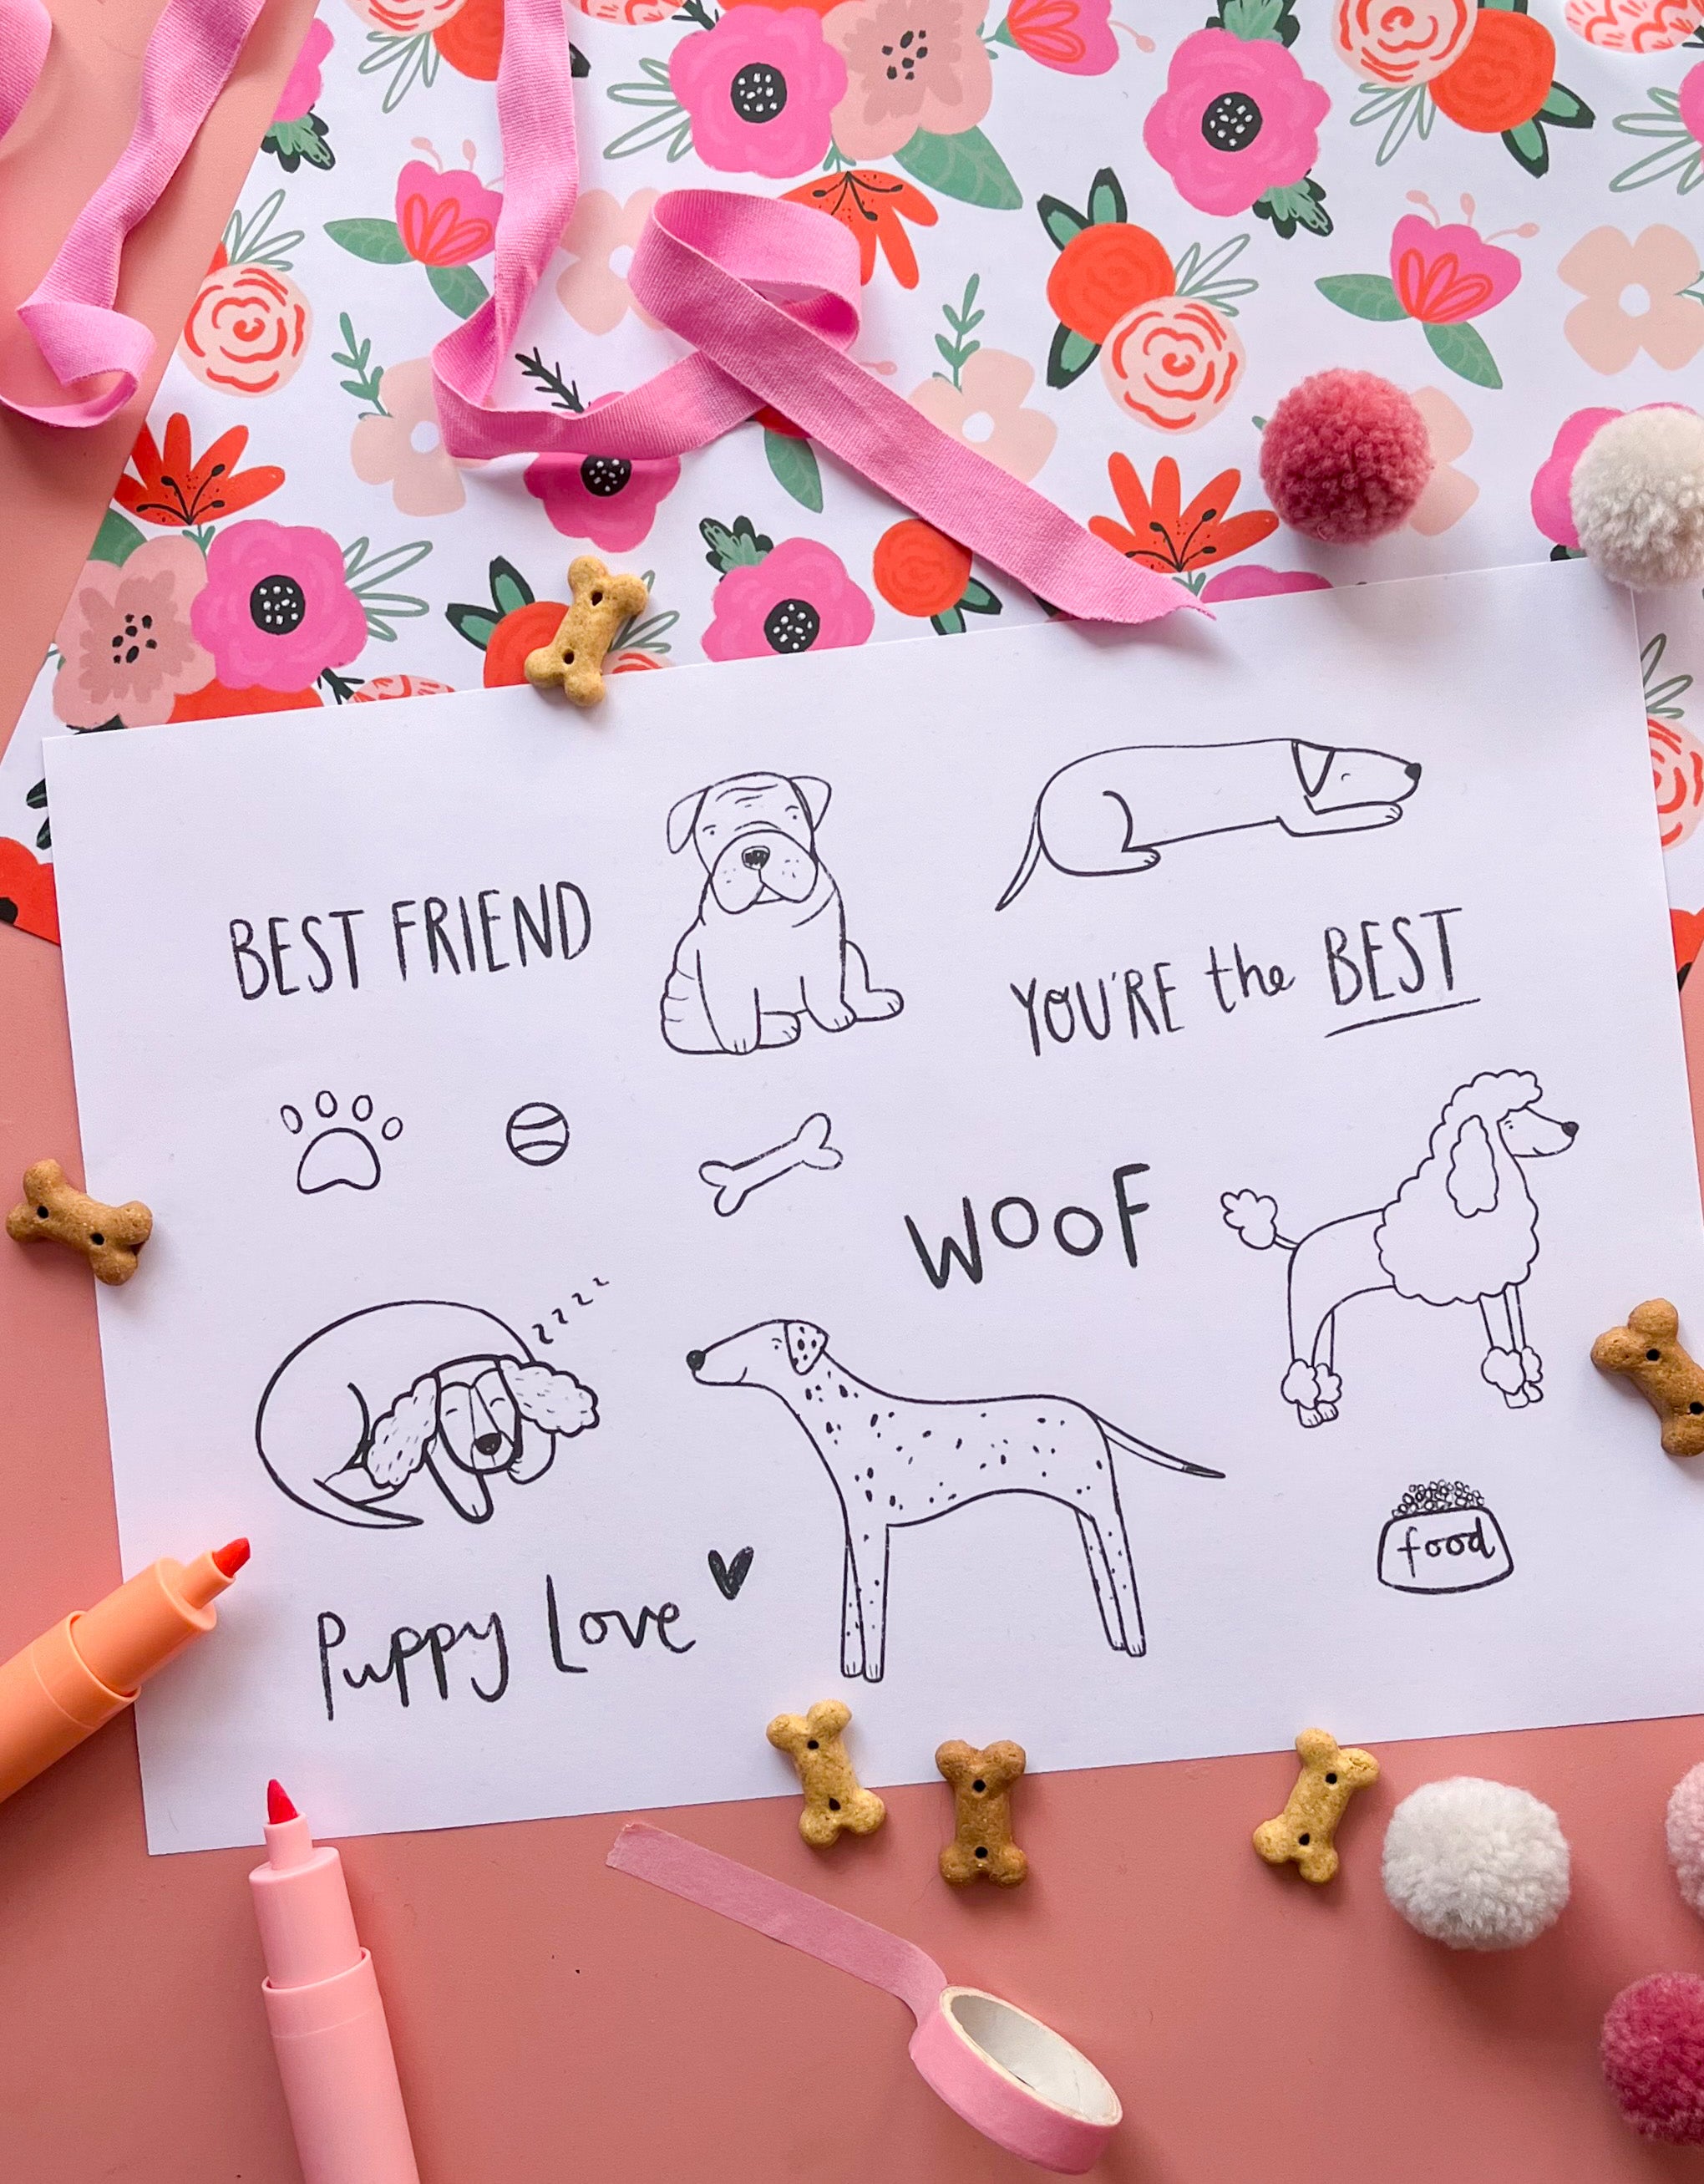 BEST FRIEND
YOU'RE the BEST
WOOF
zzzz
food
Puppy Love